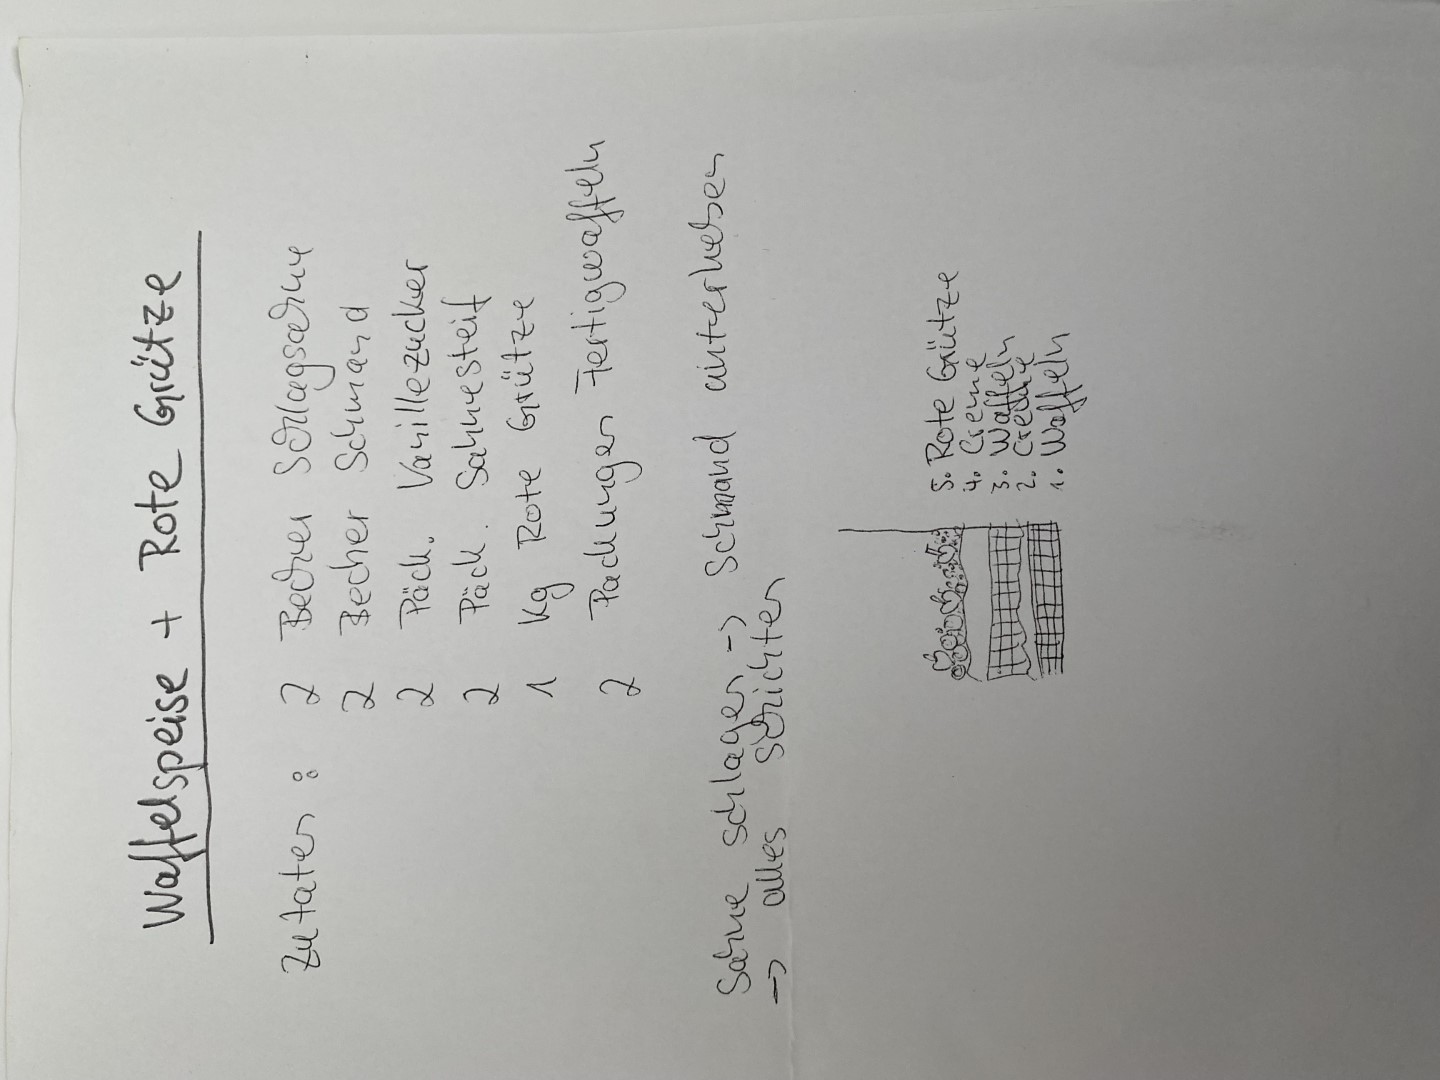 Waffelspeise + Rote Grütze
Zutaten: 2 Becher Schlagsahne
2 Becher Schmand
2 Päck. Vanillezucker
2 Päck. Sahnesteif
1 Kg Rote Grütze
2 Packungen Fertigwaffeln
Sahne schlagen -> Schmand unterheben
-> alles schichten
5. Rote Grütze
4. Creme
3. Waffeln
2. Creme
1. Waffeln